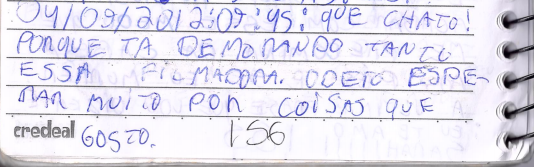 04/09/2012:09:45: QUE CHATO!
PORQUE TA DEMORANDO TANTO
ESSA FILMADORA. ODEIO ESPE-
RAR MUITO POR COISAS QUE
credeal GOSTO. 156